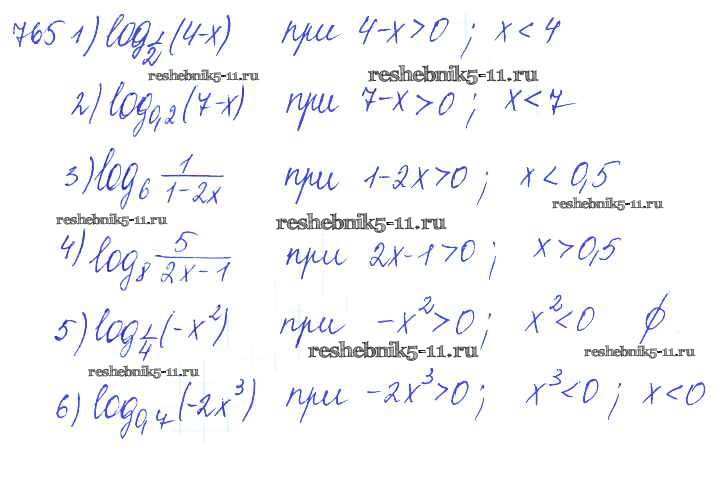 765 1) log_{1/2}(4-x) при 4-x>0 ; x<4
reshebnik5-11.ru reshebnik5-11.ru
2) log_{0,2}(7-x) при 7-x>0 ; x<7
3) log_6 1/(1-2x) при 1-2x>0 ; x<0,5
reshebnik5-11.ru reshebnik5-11.ru reshebnik5-11.ru
4) log_8 5/(2x-1) при 2x-1>0 ; x>0,5
5) log_{1/4}(-x²) при -x²>0 ; x²<0 ∅
reshebnik5-11.ru reshebnik5-11.ru reshebnik5-11.ru
6) log_{0,7}(-2x³) при -2x³>0 ; x³<0 ; x<0